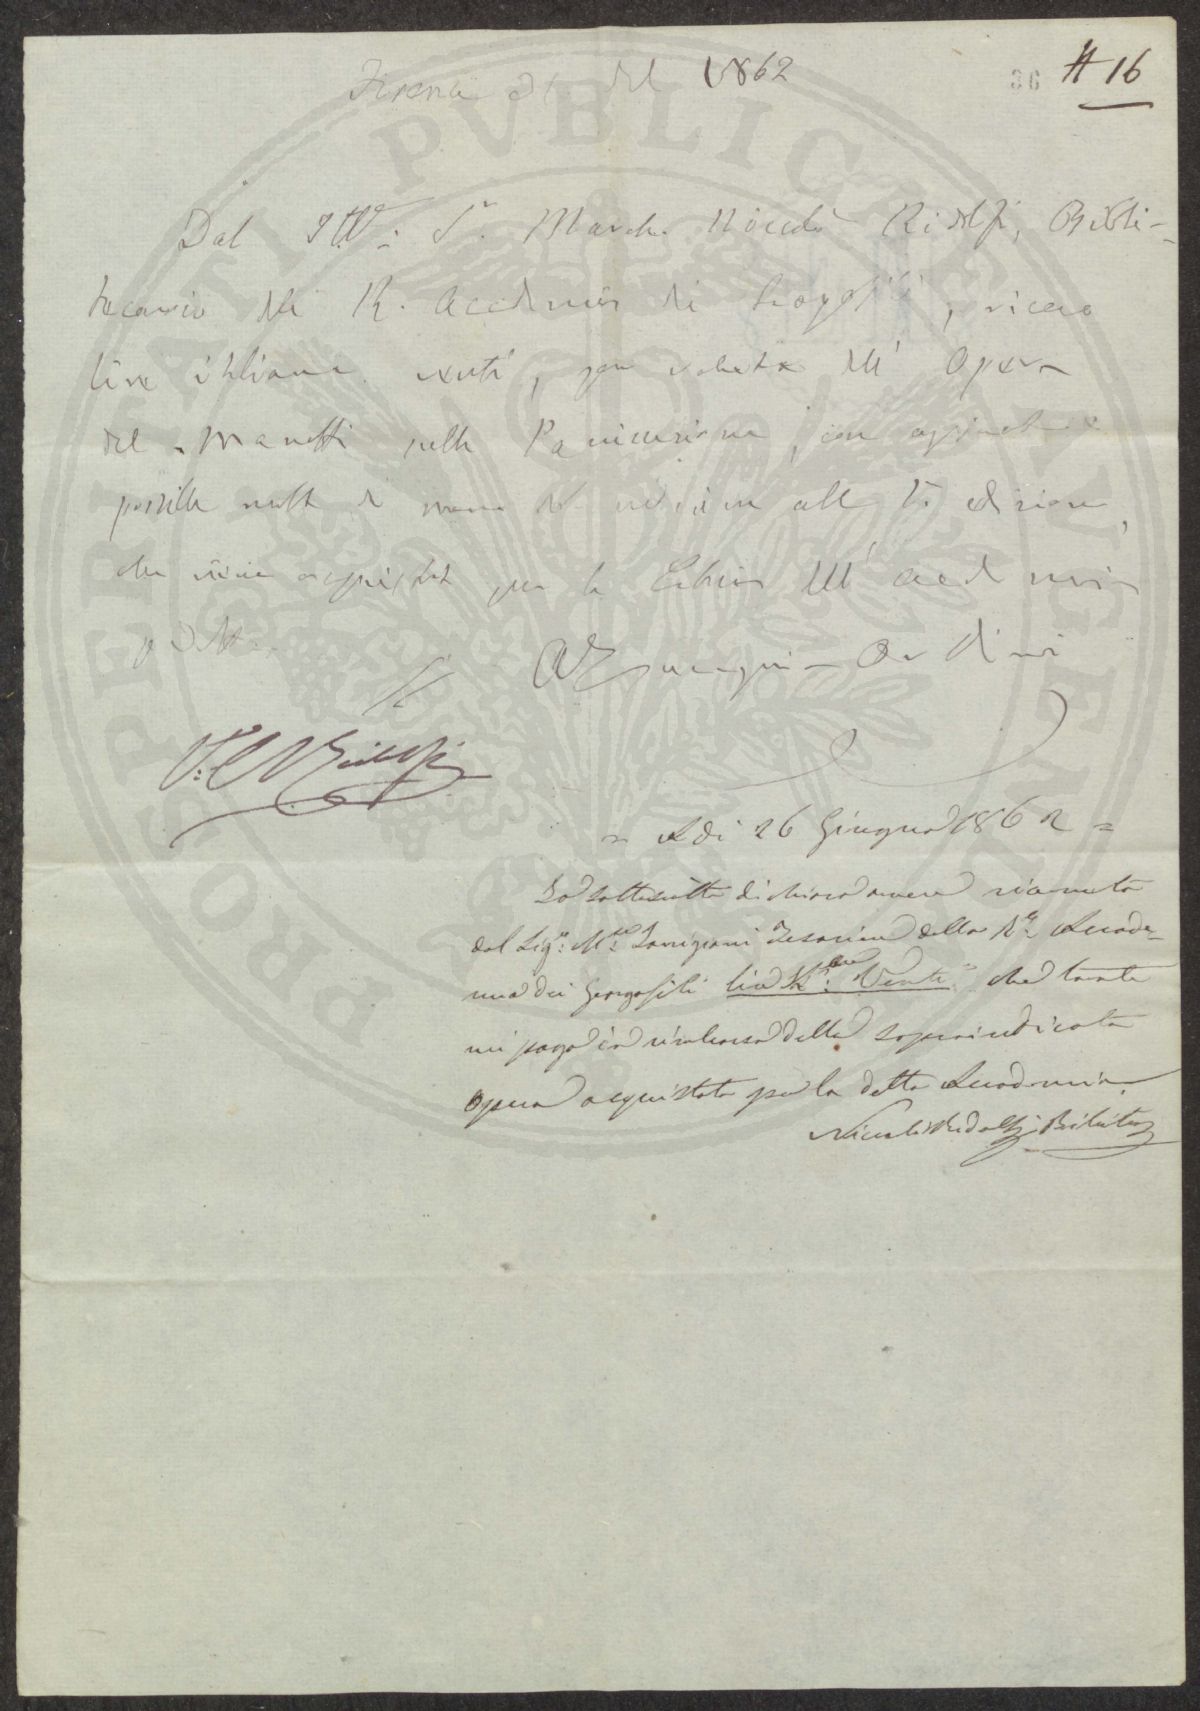 36 # 16
Firenze 21 del 1862
Dal Ill.: S.r March. Niccolò Ridolfi, Biblio-
tecario della R. Accademia dei Georgofili, ricevo
lire italiane venti, per valuta dell' Opera
del Manetti sulla Panizzazione, con aggiunte e
postille molte di mano del alla edizione,
che viene acquistata per la Libreria dell' Accademia
detta.
V.o N Ridolfi
= A di 26 Giugno 1862 =
Io sottoscritto dichiaro avere ricevuto
dal Sig.e M.se Tesoriere della R.e Accade-
mia dei Georgofili lire It.ne Venti che tante
mi paga in rimborso della sopraindicata
opera acquistata per la detta Accademia
Niccolò Ridolfi Bibliot.
PROSPERITATI PVBLICAE AVGENDAE